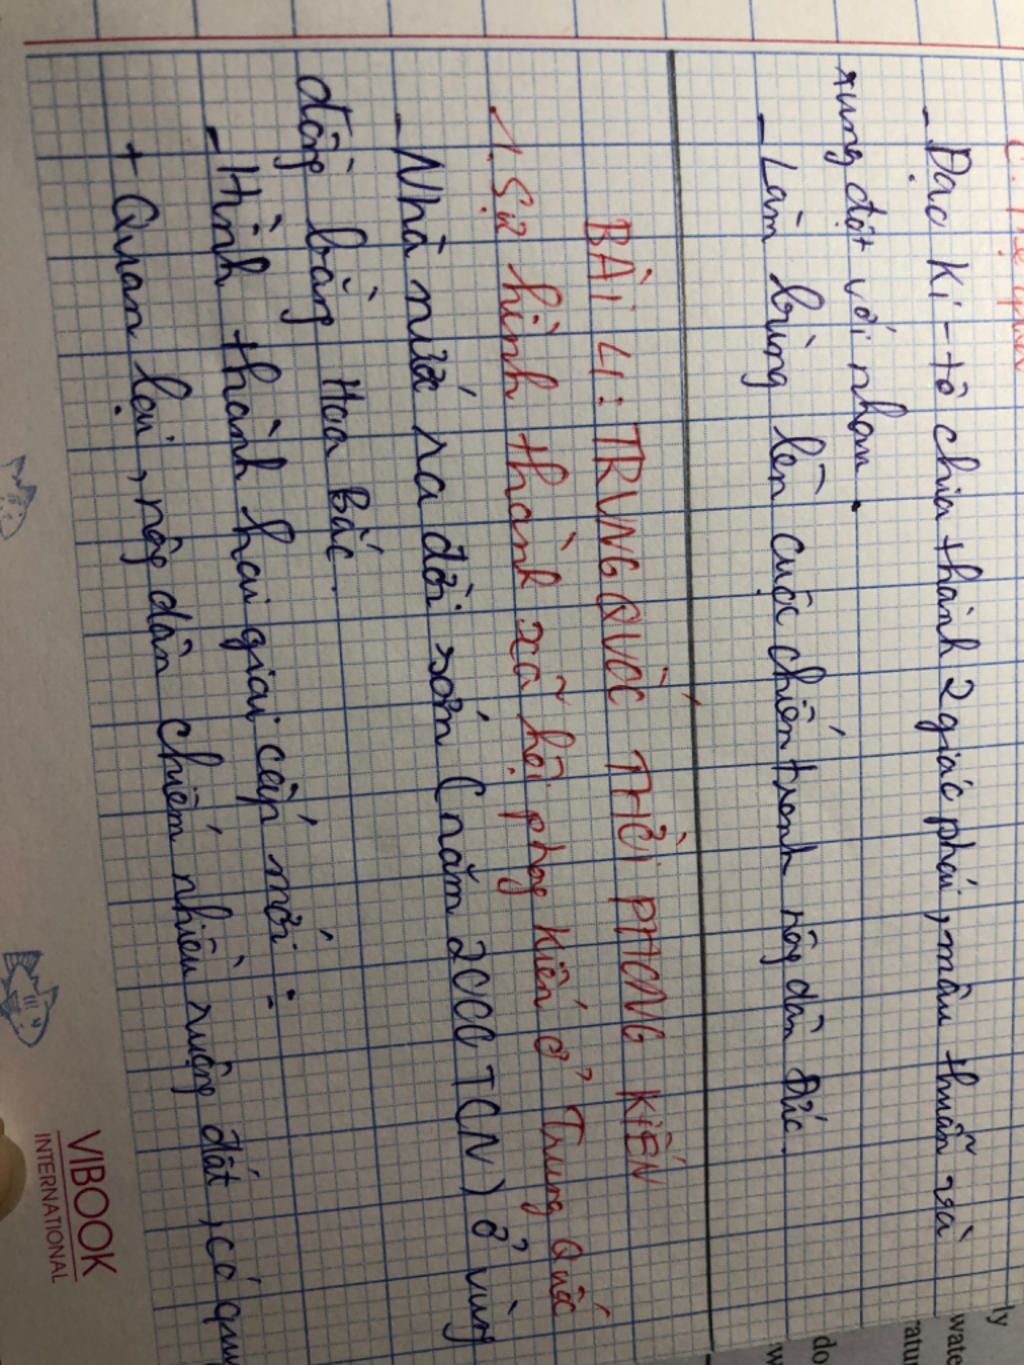 - Đạo Ki-tô chia thành 2 giáo phái, mâu thuẫn và
xung đột với nhạm.
- Làm bùng lên cuộc chiến tranh nông dân Đức.
BÀI 4: TRUNG QUỐC THỜI PHONG KIẾN
1. Sự hình thành xã hội phong kiến ở Trung Quốc
- Nhà nước ra đời sớm (năm 2000 TCN) ở vùng
đồng bằng Hoa Bắc.
- Hình thành hai giai cấp mới:
+ Quan lại, nông dân chiếm nhiều ruộng đất, có
VIBOOK
INTERNATIONAL
ly
do